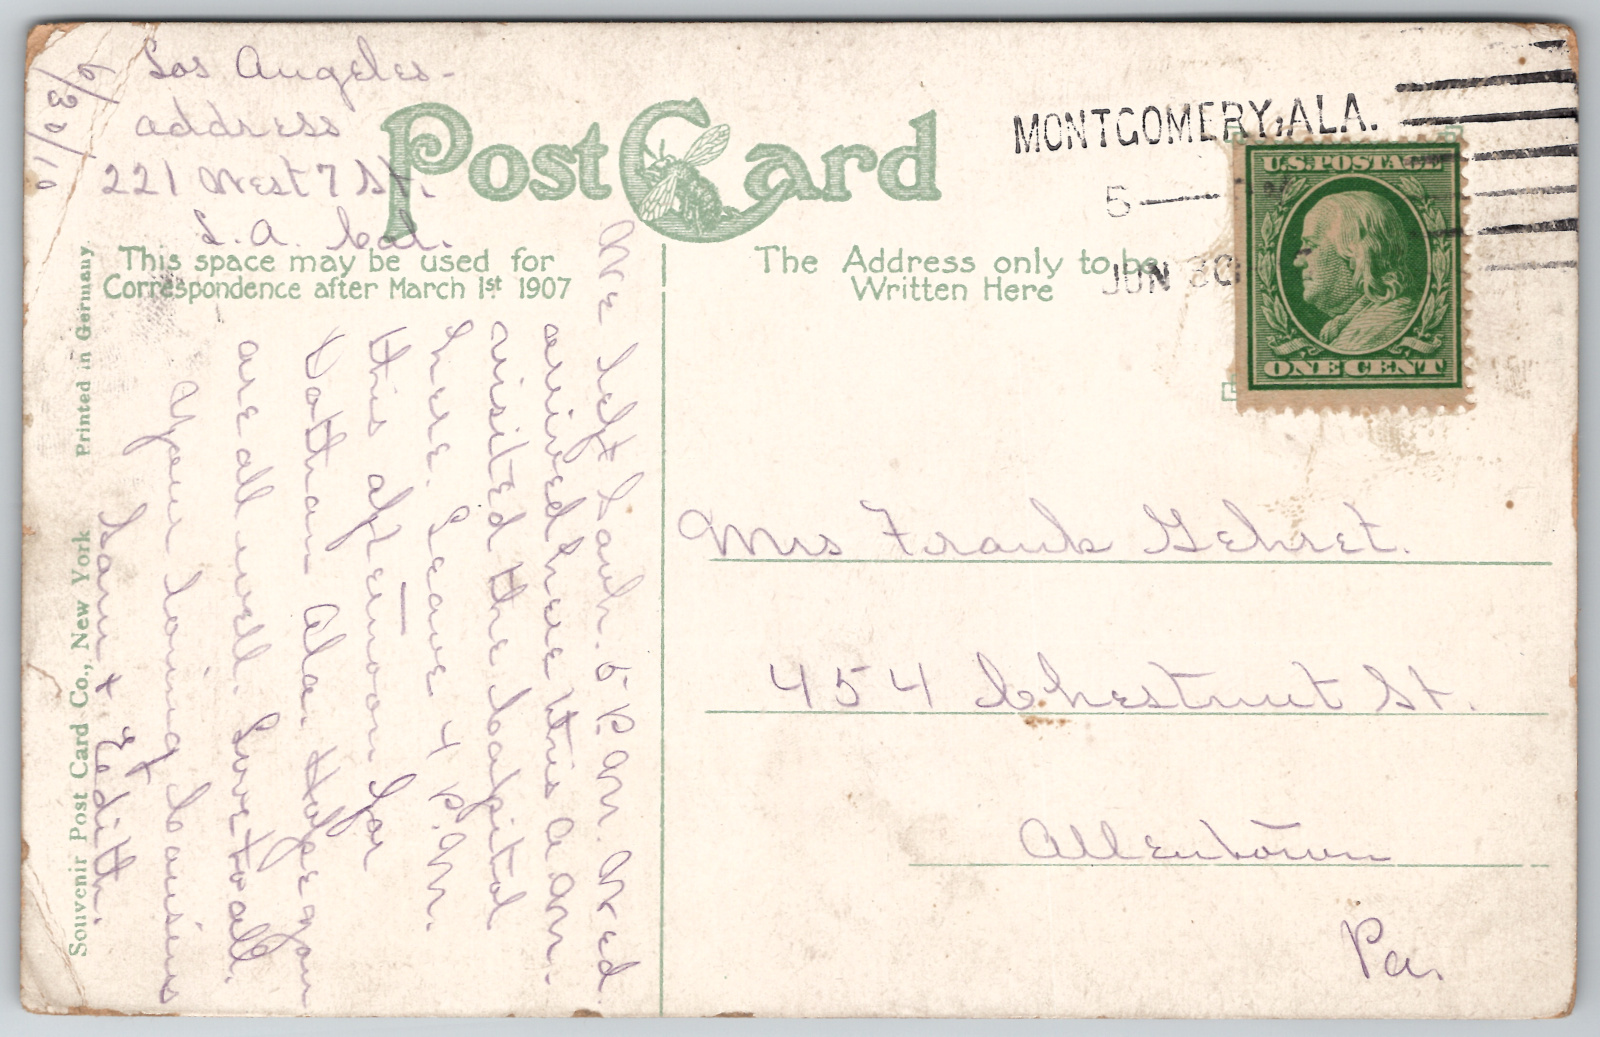 6/30/10
Los Angeles-
address
221 West 7 St.
L.A. Cal.
Post Card
This space may be used for
Correspondence after March 1st 1907
The Address only to be
Written Here
MONTGOMERY, ALA.
5
JUN 30
U.S. POSTAGE
ONE CENT
We left Sav'h. 5 P.M. Wed.
arrived here this A.M.
visited the Capitol
here. Leave 4 P.M.
this afternoon for
Dothan Ala. Hope you
are all well. Love to all.
Your loving Cousins
Sam + Edith.
Mrs Frank Gehret.
454 Chestnut St.
Allentown
Pa.
Souvenir Post Card Co., New York Printed in Germany.